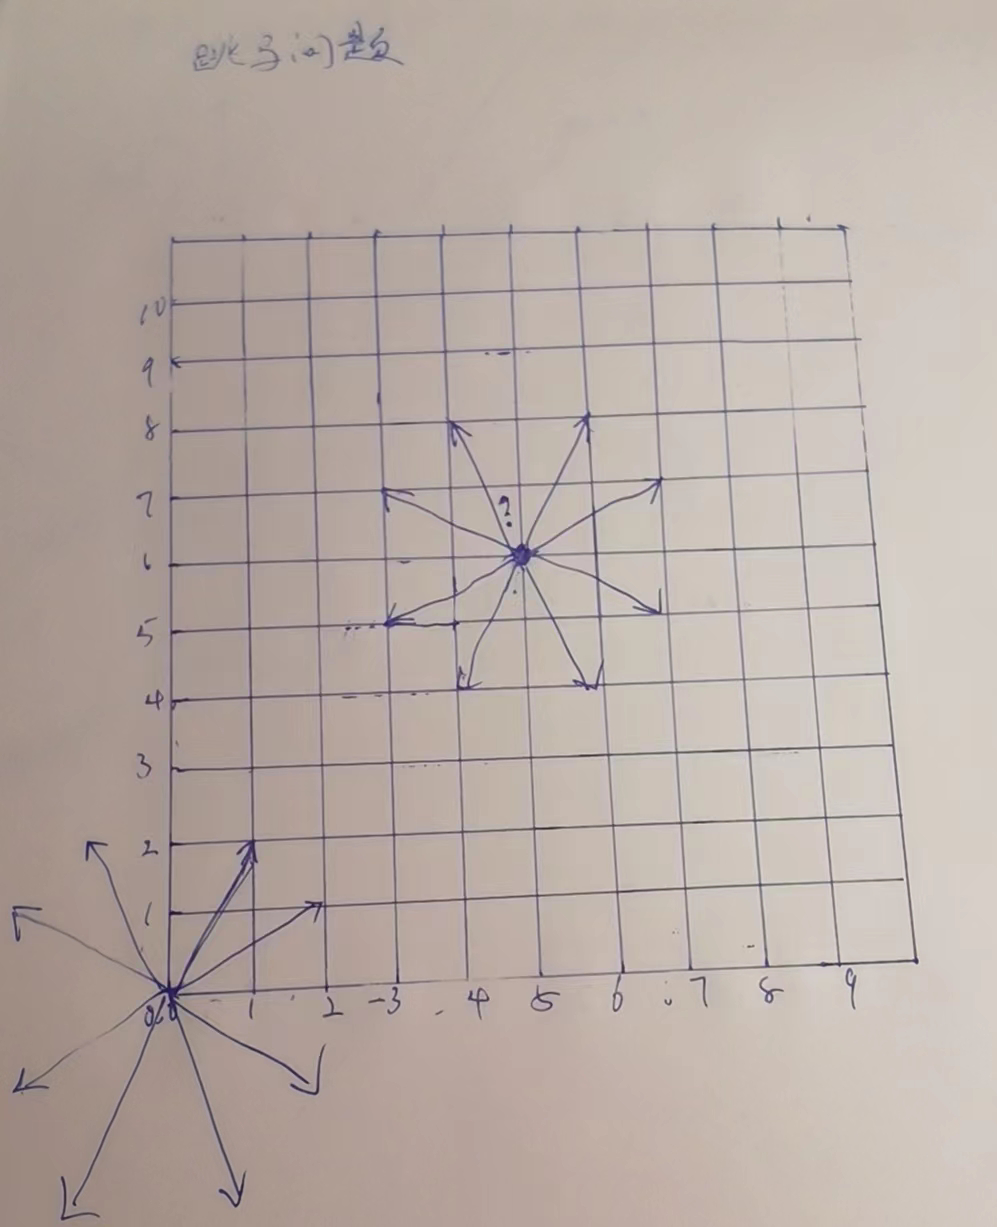 跳马问题
10
9
8
7
?
6
5
4
3
2
1
0 1 2 3 4 5 6 7 8 9